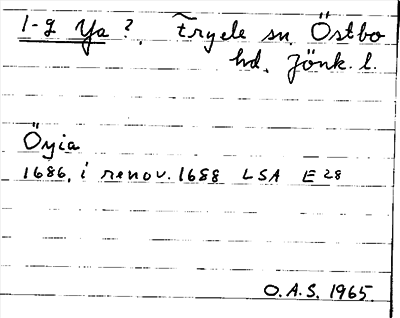 1-g Ya ?. Tryele sn. Östbo
hd. Jönk. l.
Öyia
1686, i renov. 1688 LSA E 28
O.A.S. 1965.